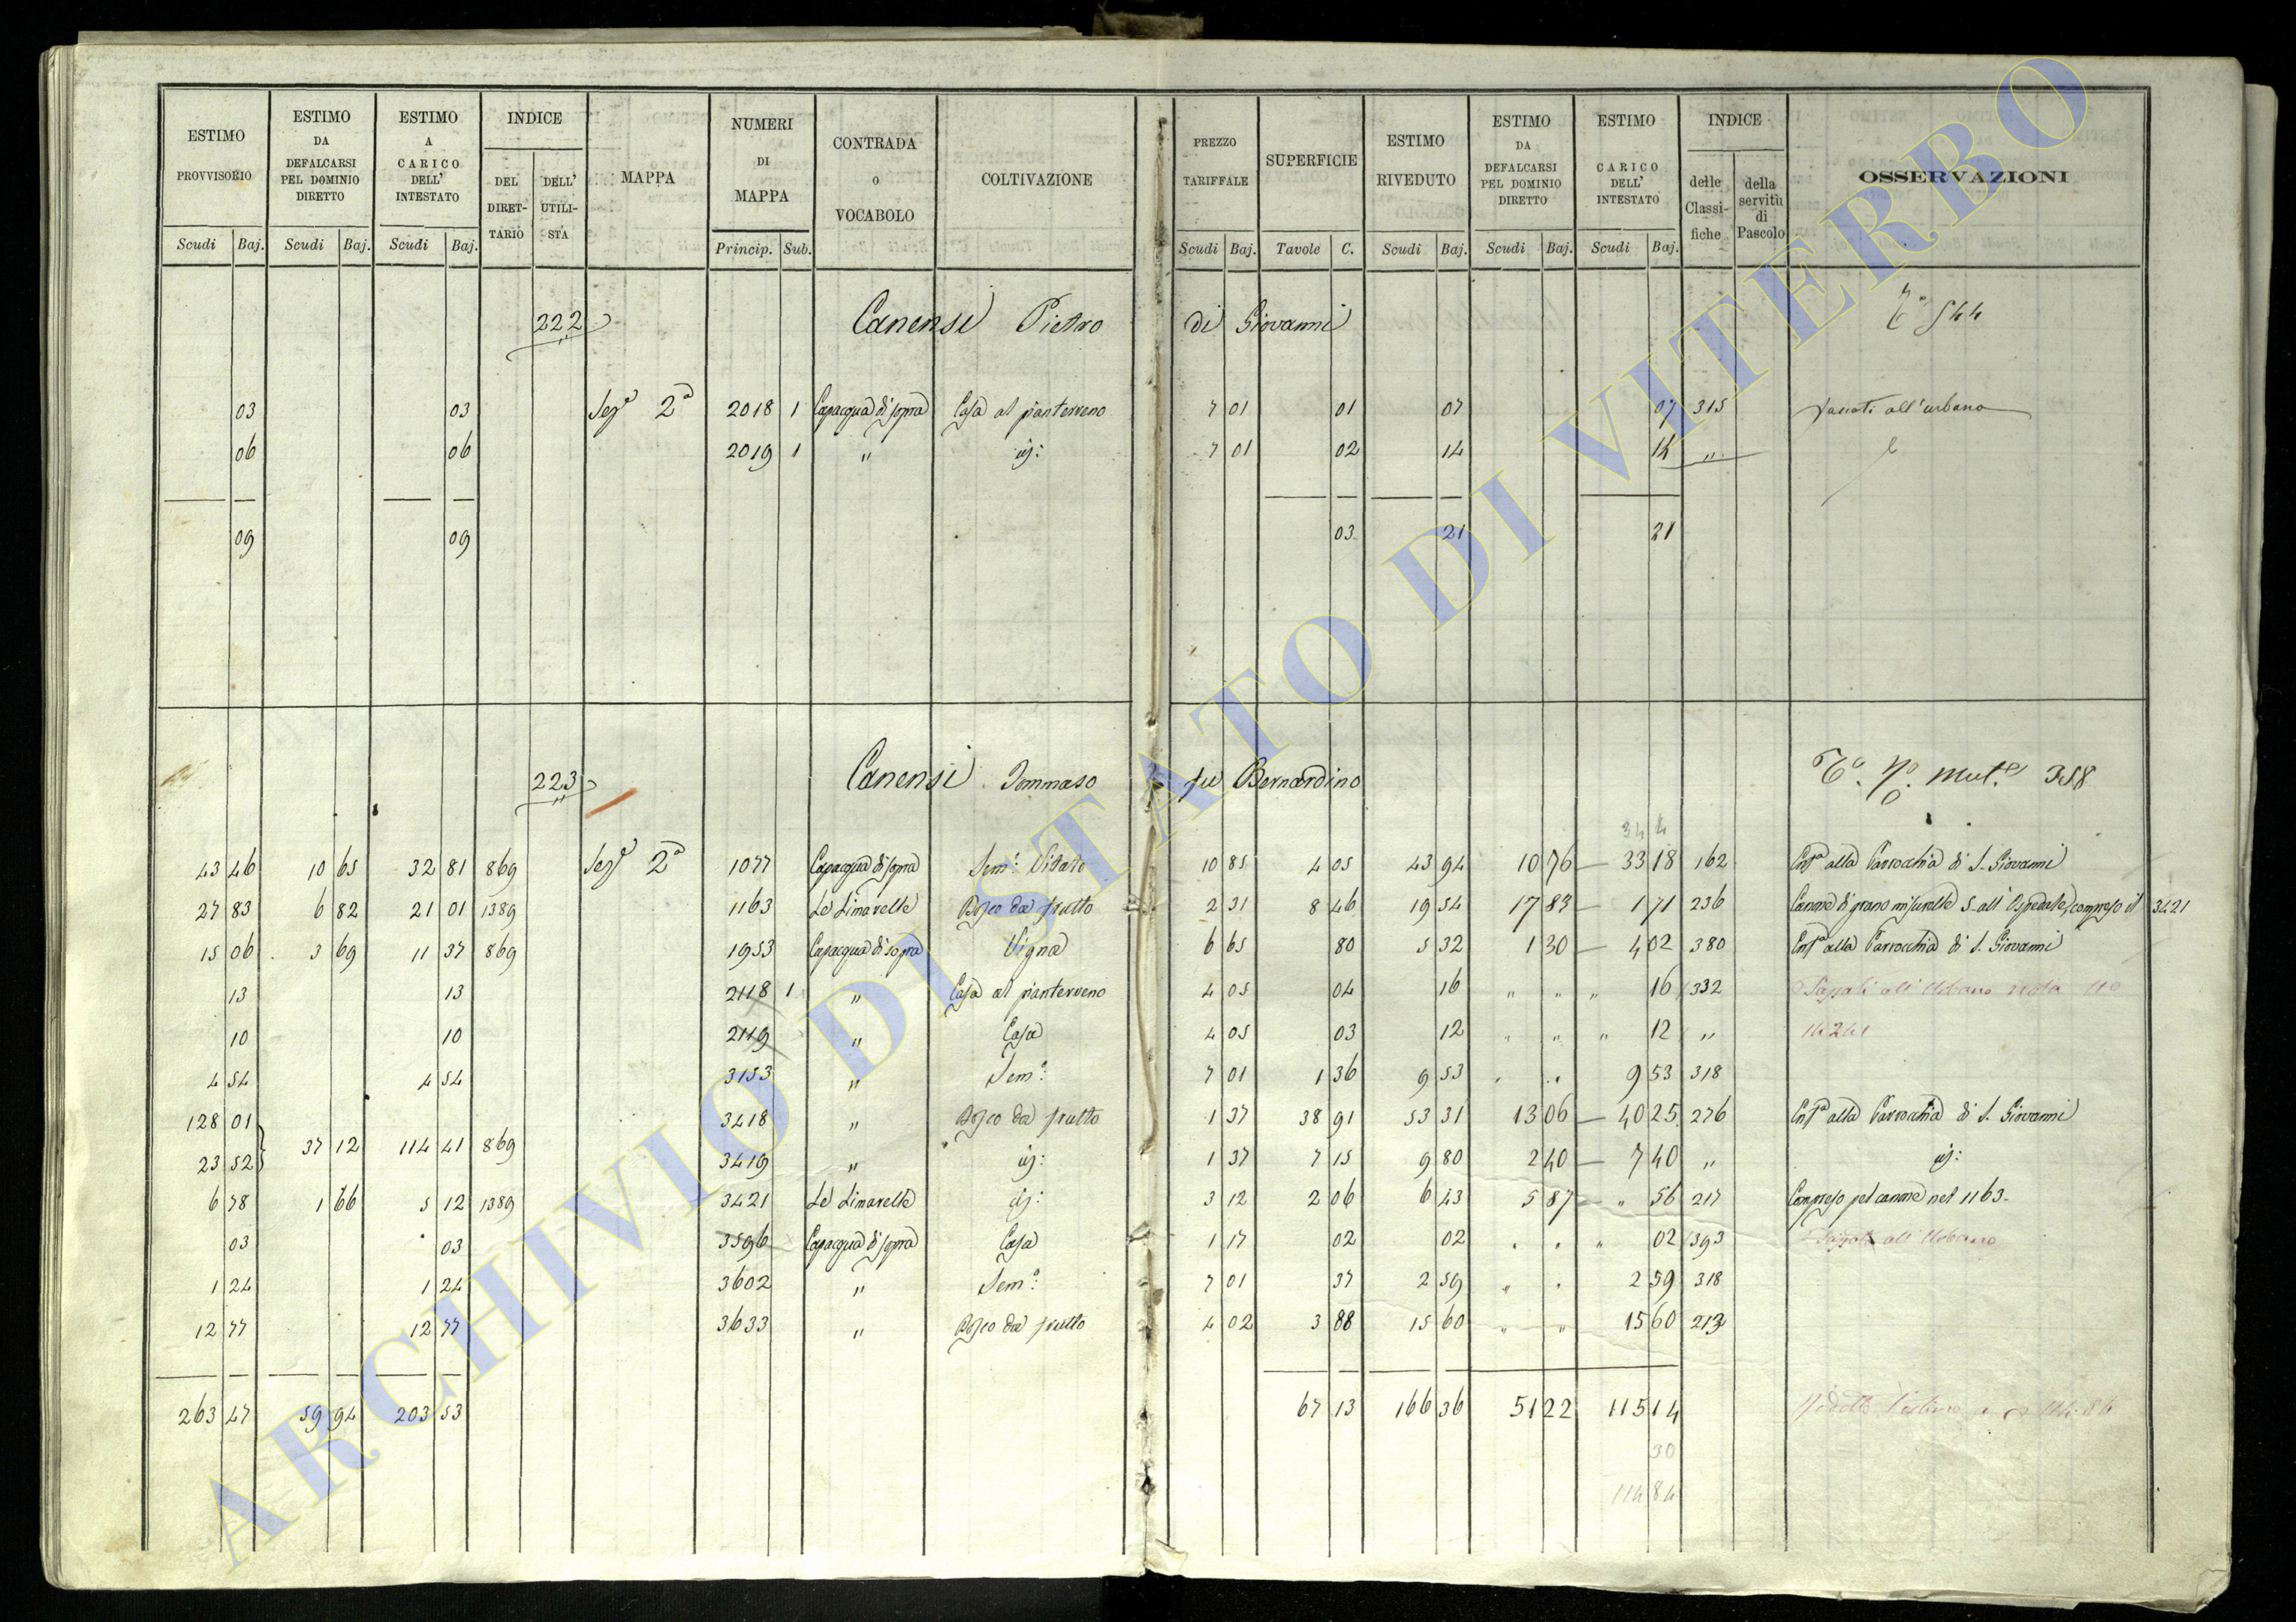 ESTIMO PROVVISORIO Scudi Baj. | ESTIMO DA DEFALCARSI PEL DOMINIO DIRETTO Scudi Baj. | ESTIMO A CARICO DELL' INTESTATO Scudi Baj. | INDICE DEL DIRET-TARIO | DELL' UTILI-STA | MAPPA | NUMERI DI MAPPA Princip. Sub. | CONTRADA o VOCABOLO | COLTIVAZIONE | PREZZO TARIFFALE Scudi Baj. | SUPERFICIE Tavole C. | ESTIMO RIVEDUTO Scudi Baj. | ESTIMO DA DEFALCARSI PEL DOMINIO DIRETTO Scudi Baj. | ESTIMO CARICO DELL' INTESTATO Scudi Baj. | INDICE delle Classi-fiche | della servitù di Pascolo | OSSERVAZIONI
222 Canensi Pietro di Giovanni 544
03 03 Seze 2a 2018 1 Capacqua di sopra Casa al pianterreno 7 01 01 07 07 315 Passati all'urbano
06 06 2019 1 " id: 7 01 02 14 14 "
09 09 03 21 21
223 Canensi Tommaso fu Bernardino Mute 358
34 4
43 46 10 65 32 81 869 Sez 2a 1077 Capacqua di sopra Sem: Vitato 10 85 4 05 43 94 10 76 — 33 18 162 Enfa alla Parrocchia di S. Giovanni
27 83 6 82 21 01 1389 1163 Le Limarelle Bosco da frutto 2 31 8 46 19 54 17 83 — 1 71 236 Canone di grano misurelle 5 all'Ospedale, compreso il 3421
15 06 3 69 11 37 869 1953 Capacqua di sopra Vigna 6 65 80 5 32 1 30 — 4 02 380 Enfa alla Parrocchia di S. Giovanni
13 13 2118 1 " Casa al pianterreno 4 05 04 16 " " " 16 332 Passati all'Urbano nota 110
10 10 2119 " Casa 4 05 03 12 " " " 12 " 14241
4 54 4 54 3153 " Semo: 7 01 1 36 9 53 " " 9 53 318
128 01 3418 " Bosco da frutto 1 37 38 91 53 31 13 06 — 40 25 276 Enfa alla Parrocchia di S. Giovanni
37 12 114 41 869
23 52 3419 " id: 1 37 7 15 9 80 2 40 — 7 40 " id:
6 78 1 66 5 12 1389 3421 Le Limarelle id: 3 12 2 06 6 43 5 87 — " 56 217 Compreso pel canone nel 1163.
03 03 3596 Capacqua di sopra Casa 1 17 02 02 " " " 02 393 Passati all'Urbano
1 24 1 24 3602 " Semo: 7 01 37 2 59 " " 2 59 318
12 77 12 77 3633 " Bosco da frutto 4 02 3 88 15 60 " " 15 60 213
263 47 59 94 203 53 67 13 166 36 51 22 115 14 Ridotto l'estimo a 114:84
30
114 84
ARCHIVIO DI STATO DI VITERBO